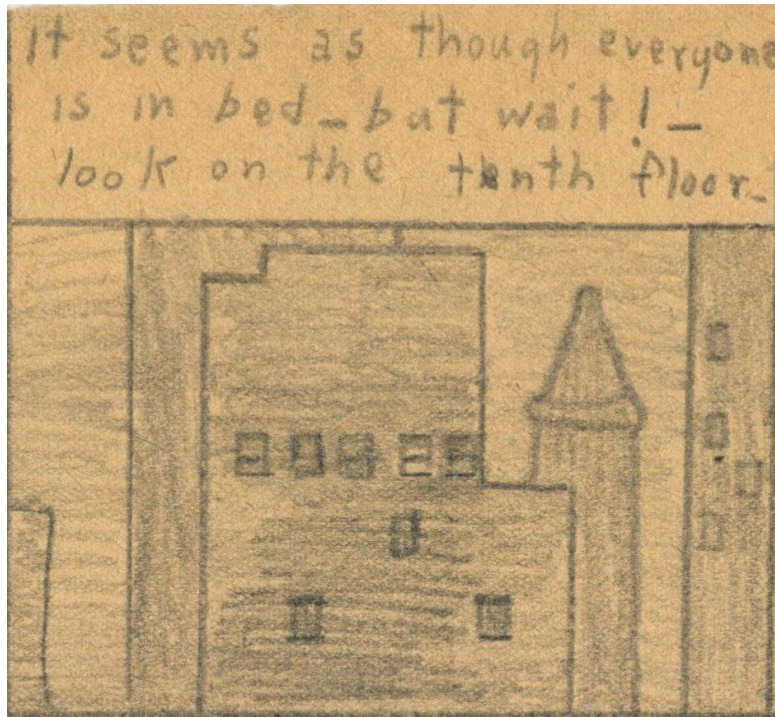 It seems as though everyone
is in bed_but wait!_
look on the tenth floor_